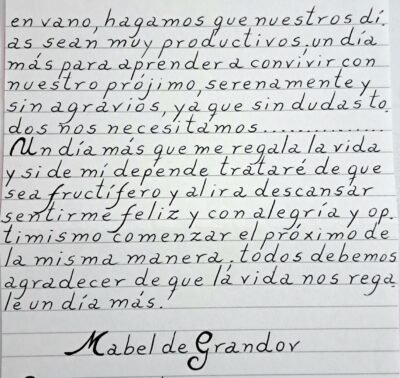 en vano, hagamos que nuestros dí.
as sean muy productivos, un día
más para aprender a convivir con
nuestro prójimo, serenamente y
sin agravios, ya que sin dudas to.
dos nos necesitamos..............
Un día más que me regala la vida
y si de mí depende trataré de que
sea fructífero y al ir a descansar
sentirme feliz y con alegría y op.
timismo comenzar el próximo de
la misma manera, todos debemos
agradecer de que la vida nos rega.
le un día más.
Mabel de Grandov